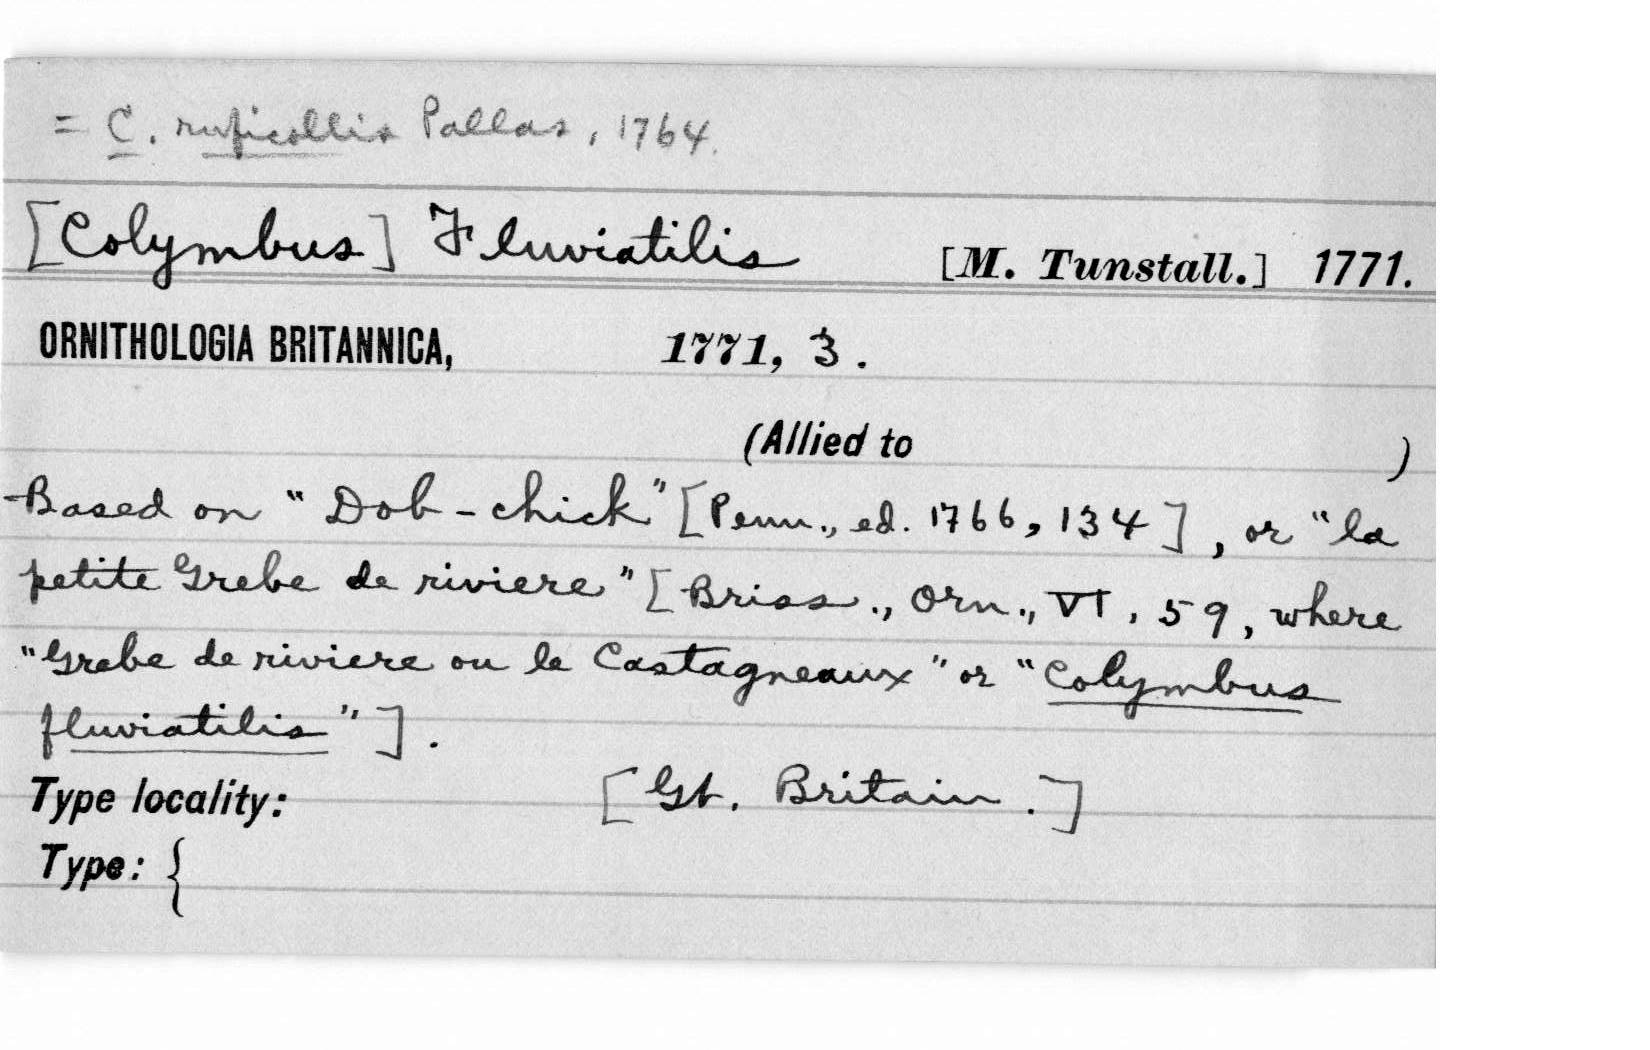 = C. ruficollis Pallas, 1764.
[Colymbus] Fluviatilis [M. Tunstall.] 1771.
ORNITHOLOGIA BRITANNICA, 1771, 3.
(Allied to )
Based on "Dob-chick" [Penn., ed. 1766, 134], or "la
petite Grebe de riviere" [Briss., Orn., VI, 59, where
"Grebe de riviere ou le Castagneaux" or "Colymbus
fluviatilis"].
Type locality: [Gt. Britain.]
Type: {